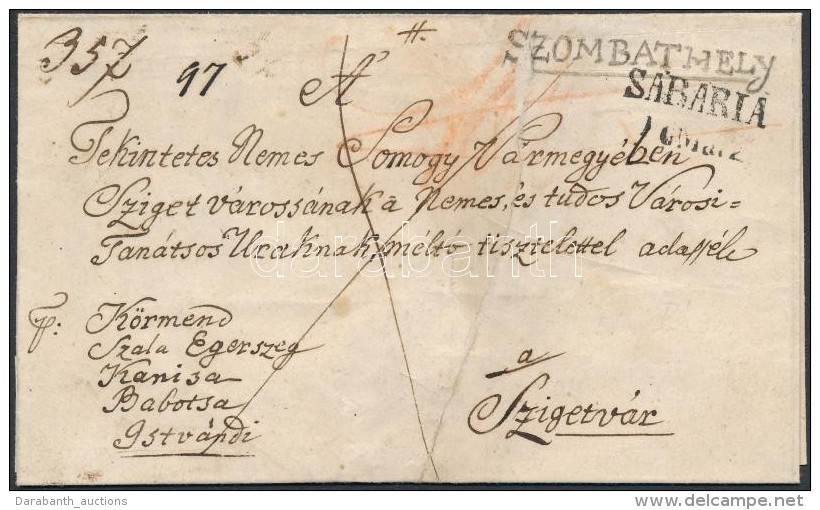 357
97
#.
SZOMBATHELY
SABARIA
A'
Tekintetes Nemes Somogy Vármegyében
Sziget várossának a Nemes, és tudos Városi=
Tanátsos Uraknak, méltó tisztelettel adassék
p: Körmend
Szala Egerszeg
Kanisa
Babotsa
Istvándi
a
Szigetvár
darabanth
Darabanth_auctions
www.delcampe.net